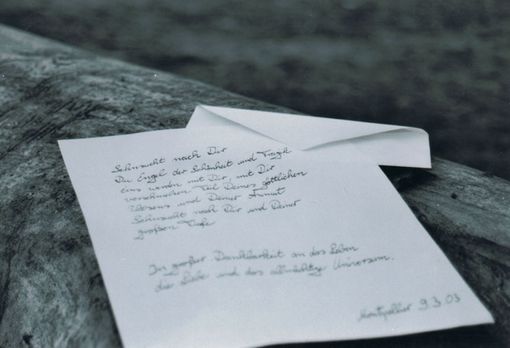 Sehnsucht nach Dir
Du Engel der Schönheit und
Eins werden mit Dir, mit Dir
verschmelzen Teil Deines göttlichen
Wesens und Deiner Anmut
Sehnsucht nach Dir und Deiner
großen Tiefe
In großer Dankbarkeit an das Leben
die Liebe und das allmächtige Universum.
Montpellier 9.3.03